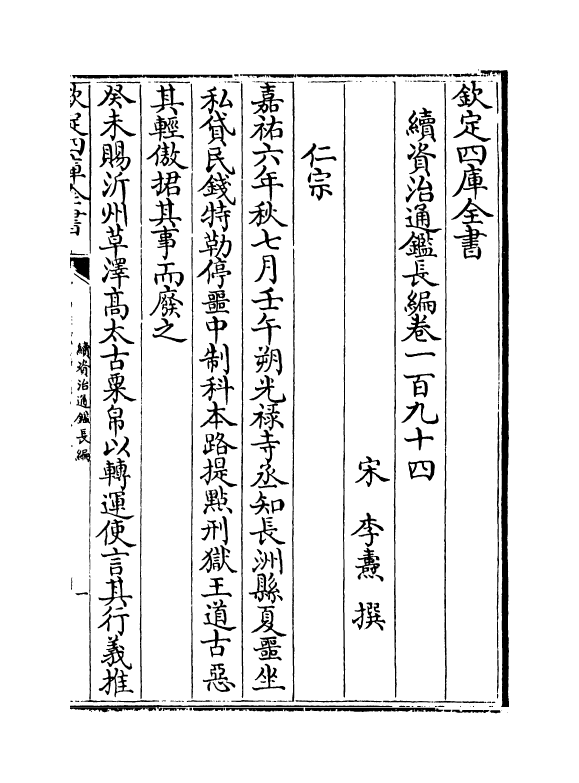 欽定四庫全書
續資治通鑑長編卷一百九十四
宋 李燾 撰
仁宗
嘉祐六年秋七月壬午朔光禄寺丞知長洲縣夏噩坐
私貸民錢特勒停噩中制科本路提點刑獄王道古惡
其輕傲捃其事而廢之
癸未賜沂州草澤高太古粟帛以轉運使言其行義推
欽定四庫全書
續資治通鑑長編
一